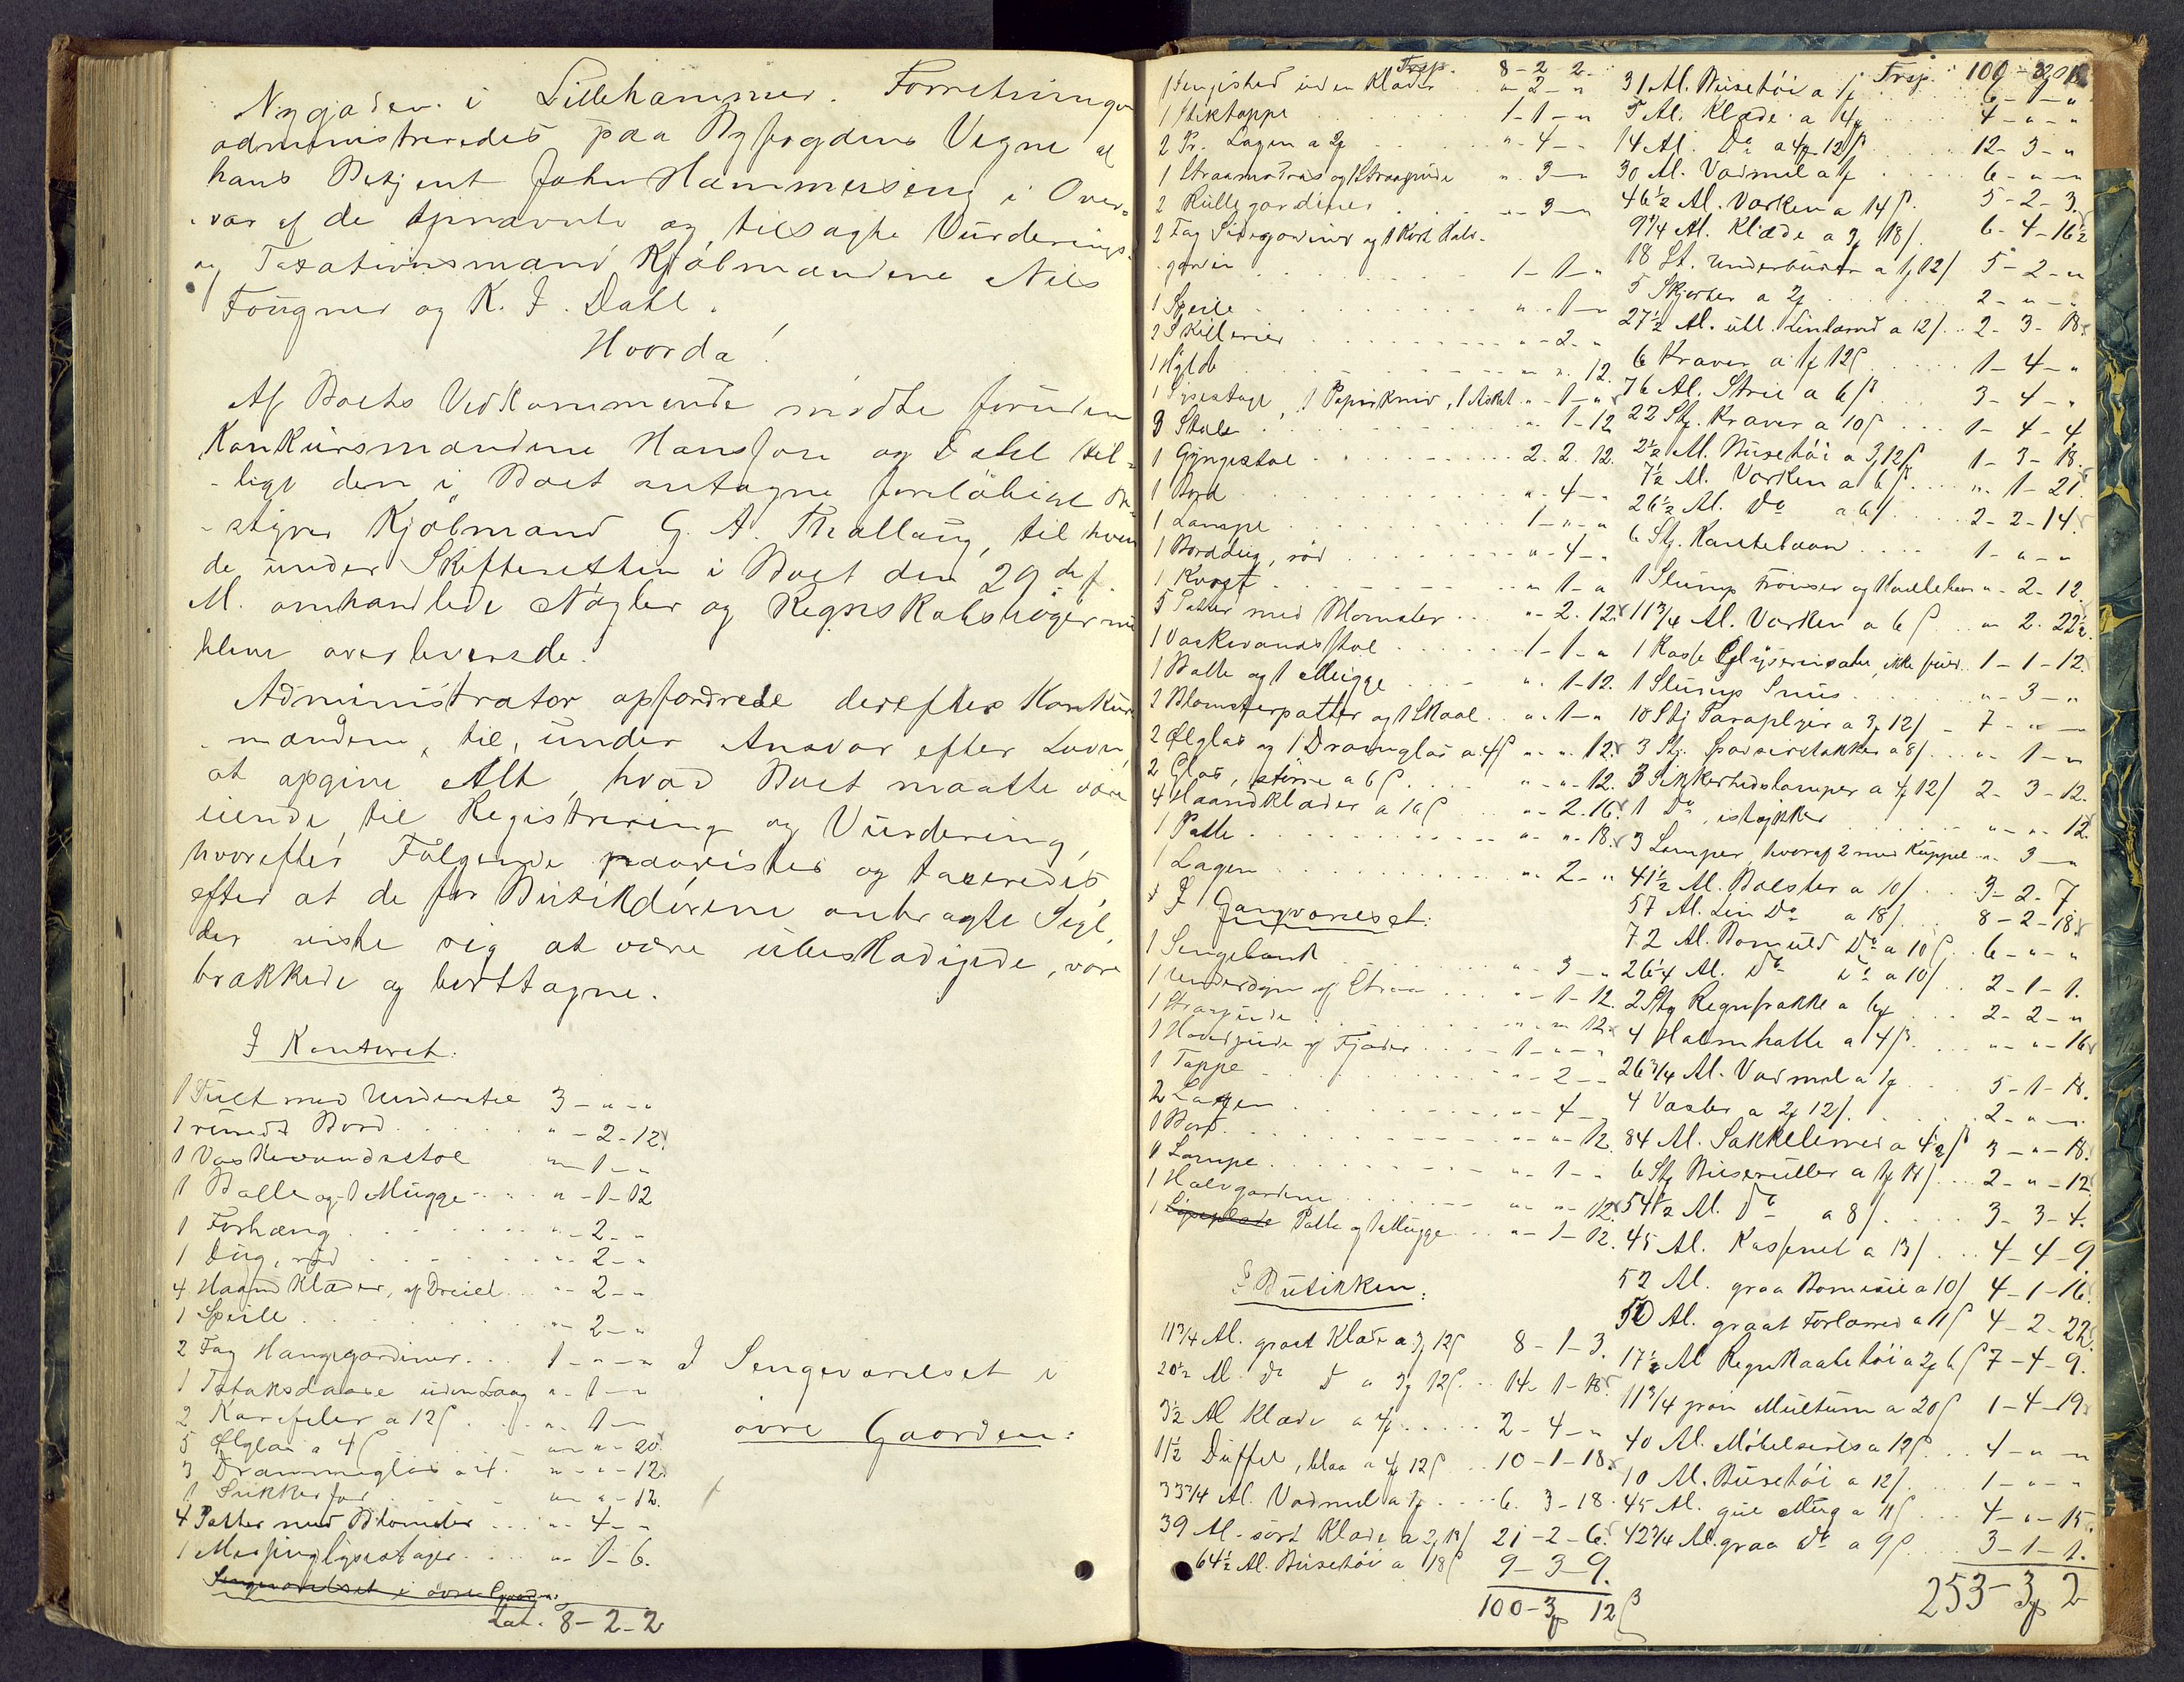 Nygaden i Lillehammer. Forretningen
administreredes paa Byfogdens Vegne af
hans Betjent John Hammerseng i Over-
- vær af de opnævnte og tilsagte Vurderings-
og Taxationsmænd Kjøbmændene Nils
Fougner og K. J. Dahl.
Hvorda!
Af Boets Vedkommende mødte foruden
Konkursmændene Hansson og Dahl til-
- lige den i Boet antagne foreløbige Be-
- styrer Kjøbmand G. A. Thallaug, til hvem
de under Skifteretten i Boet den 29 de f.
M. omhandlede Nøgler og Regnskabsbøger nu
bleve overleverede.
Administrator opfordrede derefter Konkurs-
- mændene, til, under Ansvar efter Loven,
at opgive Alt, hvad Boet maatte være
eiende, til Registrering og Vurdering,
hvorefter Følgende paavistes og taxeredes
efter at de for Butikdørene anbragte Segl,
der viste sig at være ubeskadigede, vare
brækkede og borttagne.
I Kontoret:
1 Pult med Understel 3 - " - "
1 rundt Bord " - 2 - 12
1 Vaskevandsstol " - 1 - "
1 Balle og 1 Mugge " - 1 - 12
1 Forhæng " - 2 - "
1 Dug, rød " - 2 - "
4 Haandklæder, af Dreiel " - 2 - "
1 Speile " - 2 - "
2 Fag Hænggardiner 1 - " - "
1 Tobaksdaase uden Laag " - 1 - "
2 Karafler a 12 ß " - 1 - "
5 Ølglas a 4 ß " - " - 20
3 Drammeglas a 4 " - " - 12
1 Sukkerfad " - " - 12
4 Potter med Blomster " - 4 - "
1 Messinglysestager " - 1 - 6.
Sengeværelset i øvre Gaarden:
Lat. 8 - 2 - 2
I Sengeværelset i
øvre Gaarden:
Trsp. 8 - 2 - 2
1 Sengested uden Klæder " - 2 - "
1 Stiktæppe 1 - 1 - "
2 Pr. Lagen a 2 " - 4 - "
1 Straamadras og 1 Straapude " - 3 - "
2 Rullegardiner " - 3 - "
2 Fag Sidegardiner og 1 Kort Halv-
gardin 1 - 1 - "
1 Speile " - 1 - "
2 Skillerier " - 2 - "
1 Hylde " - " - 12
1 Lysestage, 1 Papirkniv, 1 Asket " - 1 - "
3 Stole " - 1 - 12
1 Gyngestol 2. 2. 12.
1 Bord " - 4 - "
1 Lampe 1 - " - "
1 Borddug, rød " - 4 - "
1 Kurv " - 1 - "
5 Potter med Blomster " - 2. 12
1 Vaskevandsstol 1 - 1 - "
1 Balle og 1 Mugge " - 1 - 12.
2 Blomsterpotter og 1 Skaal " - 1 - "
2 Ølglas og 1 Dramglas a 4 ß " - " - 12
2 Glas, større a 6 ß " - " - 12.
4 Haandklæder a 16 ß " - 2. 16
1 Balle " - " - 18.
1 Lagen " - 2 - "
I Gangværelset:
1 Sengebænk " - 3 - "
1 Underdyne af Straa " - 1 - 12.
1 Straapude " - " - 12
1 Hovedpude af Fjæder 1 - " - "
1 Tæppe " - 2 - "
2 Lagen " - 4 - "
1 Bord " - " - 12
1 Lampe " - 1 - "
1 Halvgardine " - " - 12
1 Balle og 1 Mugge " - 1 - 12.
I Butikken:
11 3/4 Al. graat Klæde a 3 12 ß 8 - 1 - 3.
20 1/2 Al. Do Do a 3 12 ß 14 - 1 - 18
3 1/2 Al. Klæde a 4 2 - 4 - "
11 1/2 Duffel, blaa a 4 12 ß 10 - 1 - 18
33 3/4 Al. Vadmel a 1 6. 3 - 18
39 Al. sort Klæde a 2 18 ß 21 - 2 - 6
64 1/2 Al. Buxetøi a 18 ß 9 - 3 - 9.
100 - 3 12 ß
Trsp. 100 - 3 - 12
31 Al. Buxetøi a 1 6 - 1 - "
5 Al. Klæde a 4 4 - " - "
14 Al. Do a 4 12 ß 12 - 3 - "
30 Al. Vadmel a 1 6 - " - "
46 1/2 Al. Varken a 14 ß 5 - 2 - 3.
9 1/4 Al. Klæde a 3 18 ß 6 - 4 - 16 1/2
18 St. Underbuxer a 1 12 ß 5 - 2 - "
5 Skjorter a 2 2 - " - "
27 1/2 Al. ubl. Linlærred a 12 ß 2 - 3 - 18
6 Kraver a 1 12 ß 1 - 4 - "
76 Al. Strie a 6 ß 3 - 4 - "
22 Stk. Kraver a 10 ß 1 - 4 - 4
2 1/2 Al. Buxetøi a 3 12 ß 1 - 3 - 18.
7 1/2 Al. Varken a 6 ß " - 1 - 21
26 1/2 Al. Do a 6 ß 2 - 2 - 14
6 Stk. Kantebaand 1 - " - "
1 Slump Frøiser " - 2 - 12.
11 3/4 Al. Varken a 6 ß " - 2. 22 1/2
1 Kasse Glycerinsæbe, ikke fuld 1 - 1 - 12
1 Slump Snus " - 3 - "
10 Stk Paraplyer a 3 12 ß 7 - " - "
3 Stk. Spadserstokker a 8 ß " - 1 - "
3 Sikkerhedslamper a 4 12 ß 2 - 3 - 12.
1 Do, istykker " - " - 12
3 Lamper, hvoraf 2 med Kuppel " - 3 - "
41 1/2 Al. Bolster a 10 ß 3 - 2 - 7.
57 Al. Lin Do a 18 ß 8 - 2 - 18
72 Al. Bomuld Do a 10 ß 6 - " - "
26 1/4 Al. Do Do a 10 ß 2 - 1 - 1.
2 Stk Regnfrakke a 6 2 - 2 - "
4 Halmhatte a 4 ß " - " - 16
26 3/4 Al. Vadmel a 1 5 - 1 - 18.
4 Vaster a 2 12 ß 2 - " - "
84 Al. Sækkelerred a 4 1/2 ß 3 - " - 18
6 Stk Buxeruller a 1 18 ß 2 - " - 12
54 1/2 Al. Do a 8 ß 3 - 3 - 4.
45 Al. Kassinet a 13 ß 4 - 4 - 9
52 Al. graa Bomesie a 10 ß 4 - 1 - 16
50 Al. graat Forlærred a 11 ß 4 - 2 - 22
17 1/2 Al Regnkaabetøi a 2 6 ß 7 - 4 - 9.
11 3/4 grøn Multum a 20 ß 1 - 4 - 19
40 Al. Møbelsirts a 12 ß 4 - " - "
10 Al. Buxetøi a 12 ß 1 - " - "
45 Al. gul Mug a 11 ß 4 - " - 15
42 3/4 Al. graa Do a 9 ß 3 - 1 - 1.
253 - 3 2